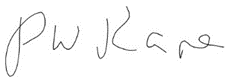 PW Kane